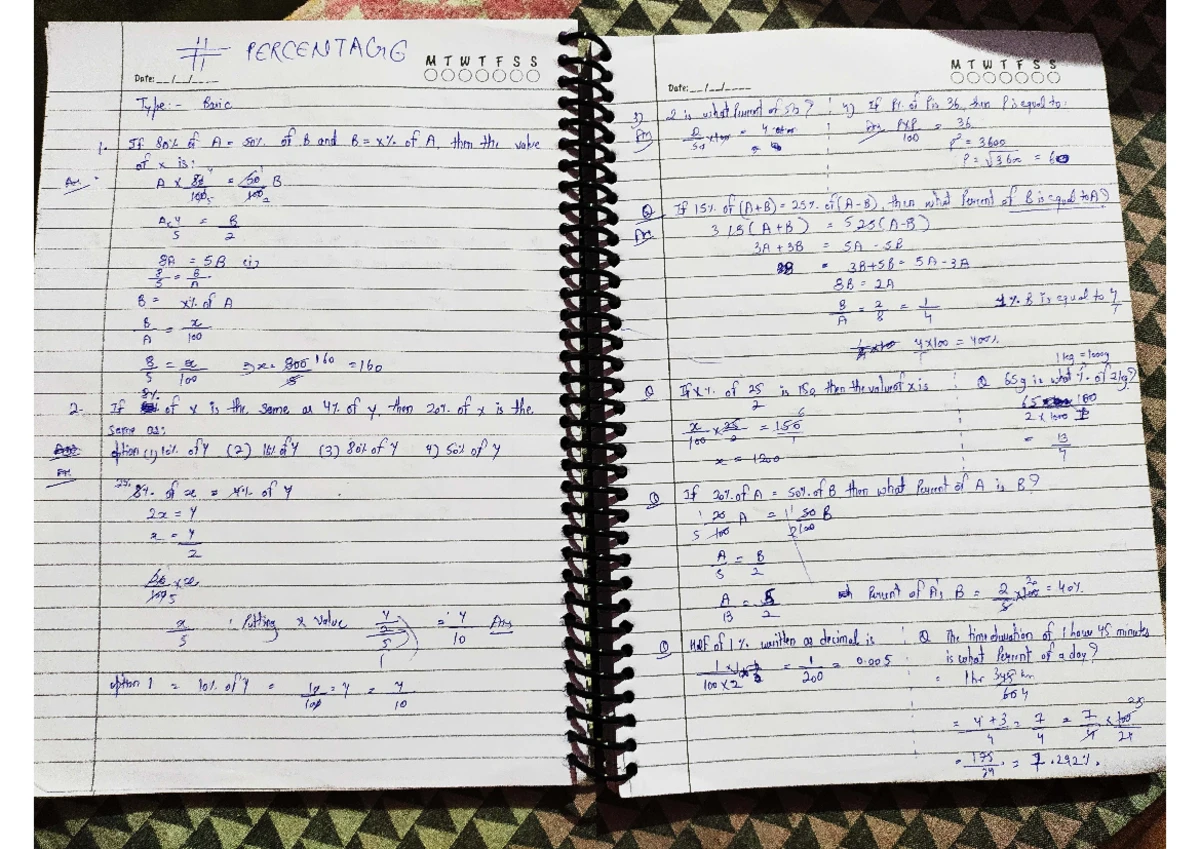 # PERCENTAGE
M T W T F S S
Date: __/__/____
Type:- Basic
1. If 80% of A = 50% of B and B = x% of A, then the value
of x is:
Ans:-
A × 80/100 = 50/100 B
A×4/5 = B/2
8A = 5B (i)
8/5 = B/A
B = x% of A
B/A = x/100
8/5 = x/100 x = 800/5 160 = 160
2. If 8% of x is the same as 4% of y, then 20% of x is the
same as:
option (1) 10% of Y (2) 16% of Y (3) 80% of Y 4) 50% of Y
Ans
8% of x = 4% of Y
2x = Y
x = Y/2
20/100 × x
x/5 : Putting x value Y/2/5 = Y/10 Ans
option 1 = 10% of Y = 10/100 × Y = Y/10
M T W T F S S
Date: __/__/____
3) 2 is what percent of 50? 4) If P% of P is 36, then P is equal to:
Ans 2/50 × 100 = 4 Ans P×P/100 = 36
P² = 3600
P = √3600 = 60
Q If 15% of (A+B) = 25% of (A-B), then what Percent of B is equal to A?
Ans 3 15(A+B) = 5 25(A-B)
3A + 3B = 5A - 5B
= 3B+5B = 5A-3A
8B = 2A
B/A = 2/8 = 1/4 % B is equal to 4/1
4×100/1 = 400%
Q If x% of 25/2 is 150, then the value of x is Q 65g is what % of 2kg?
1kg = 1000g
x/100 × 25/2 = 150/1 6
65 100
2 × 1000
x = 1200
= 13/4
Q If 20% of A = 50% of B then what Percent of A is B?
1 20/100 A = 1 50/100 B
A/5 = B/2
A/B = 5/2 Percent of A is B = 2/5 × 100 20 = 40%
Q Half of 1% written as decimal is Q The time duration of 1 hour 45 minutes
is what Percent of a day?
1×1/100×2 = 1/200 = 0.005
= 1hr 3 45 hr
60 4
= 4+3/4 = 7/4 = 7/4 × 100/24 25
= 175/24 = 7.292%.